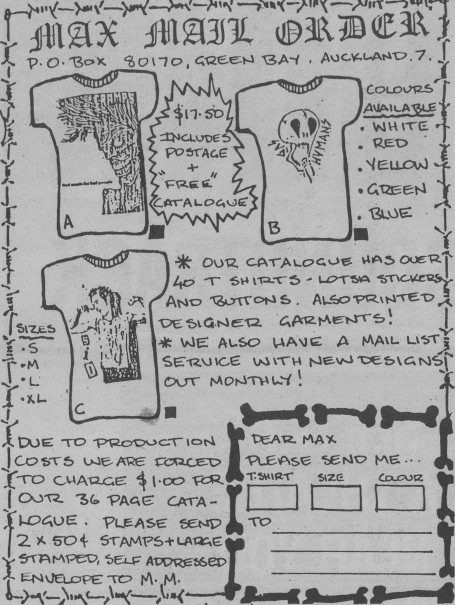 MAX MAIL ORDER
P.O. BOX 80170, GREEN BAY, AUCKLAND. 7.
$17.50
INCLUDES
POSTAGE
+
"FREE"
CATALOGUE
A
HAVMAN
B
COLOURS
AVAILABLE
• WHITE
• RED
• YELLOW
• GREEN
• BLUE
SIZES
• S
• M
• L
• XL
C
* OUR CATALOGUE HAS OVER
40 T SHIRTS - LOTSA STICKERS
AND BUTTONS. ALSO PRINTED
DESIGNER GARMENTS!
* WE ALSO HAVE A MAIL LIST
SERVICE WITH NEW DESIGNS
OUT MONTHLY!
DUE TO PRODUCTION
COSTS WE ARE FORCED
TO CHARGE $1.00 FOR
OUR 36 PAGE CATA-
LOGUE. PLEASE SEND
2 X 50¢ STAMPS + LARGE
STAMPED, SELF ADDRESSED
ENVELOPE TO M.M.
DEAR MAX
PLEASE SEND ME...
T.SHIRT SIZE COLOUR
TO